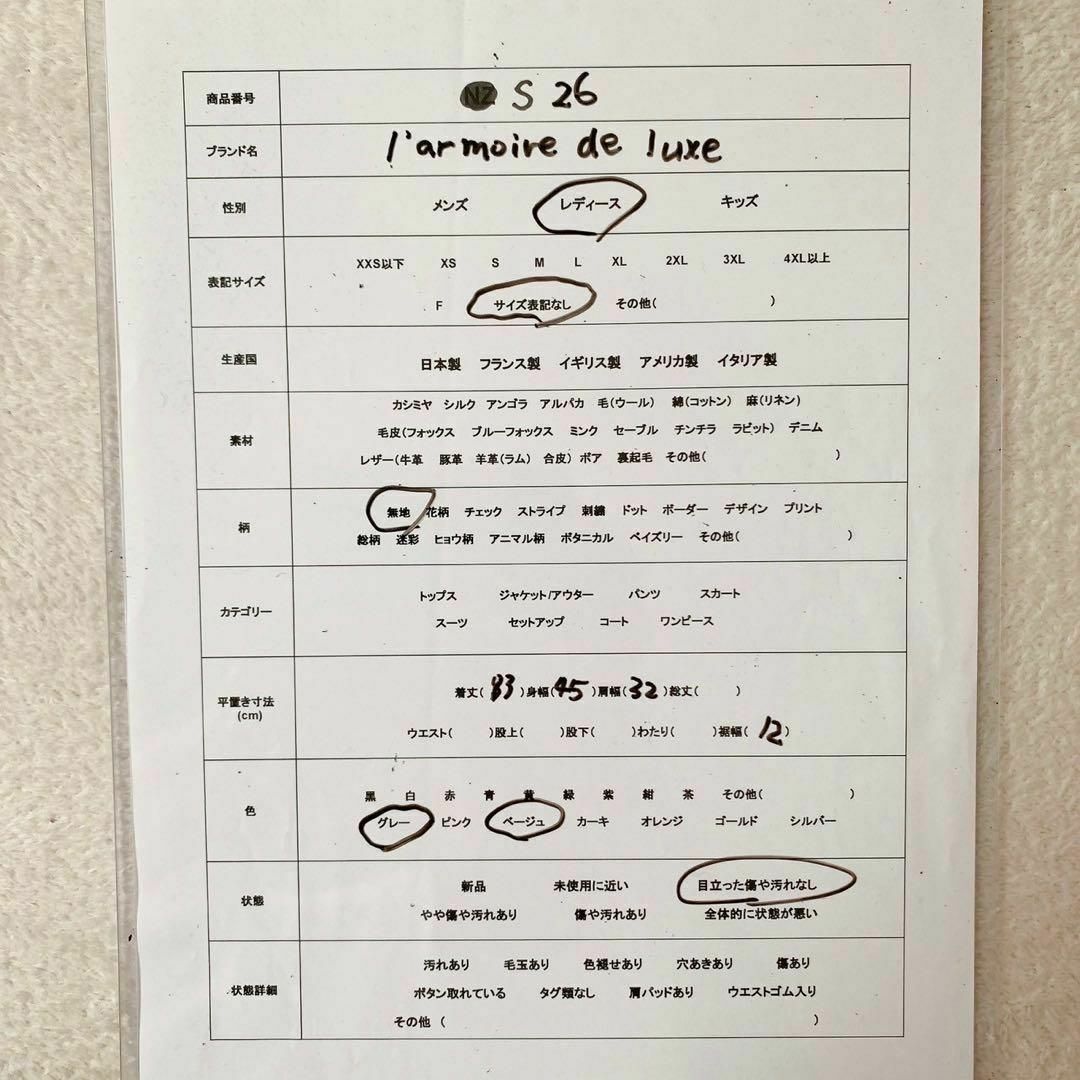 商品番号 NZ S 26
ブランド名 l'armoire de luxe
性別 メンズ レディース キッズ
XXS以下 XS S M L XL 2XL 3XL 4XL以上
表記サイズ
F サイズ表記なし その他( )
生産国 日本製 フランス製 イギリス製 アメリカ製 イタリア製
カシミヤ シルク アンゴラ アルパカ 毛(ウール) 綿(コットン) 麻(リネン)
素材 毛皮(フォックス ブルーフォックス ミンク セーブル チンチラ ラビット) デニム
レザー(牛革 豚革 羊革(ラム) 合皮) ボア 裏起毛 その他( )
柄 無地 花柄 チェック ストライプ 刺繍 ドット ボーダー デザイン プリント
総柄 迷彩 ヒョウ柄 アニマル柄 ボタニカル ペイズリー その他( )
カテゴリー トップス ジャケット/アウター パンツ スカート
スーツ セットアップ コート ワンピース
平置き寸法 着丈( 83 )身幅( 45 )肩幅( 32 )総丈( )
(cm) ウエスト( )股上( )股下( )わたり( )裾幅( 12 )
色 黒 白 赤 青 黄 緑 紫 紺 茶 その他( )
グレー ピンク ベージュ カーキ オレンジ ゴールド シルバー
状態 新品 未使用に近い 目立った傷や汚れなし
やや傷や汚れあり 傷や汚れあり 全体的に状態が悪い
汚れあり 毛玉あり 色褪せあり 穴あきあり 傷あり
状態詳細 ボタン取れている タグ類なし 肩パッドあり ウエストゴム入り
その他 ( )